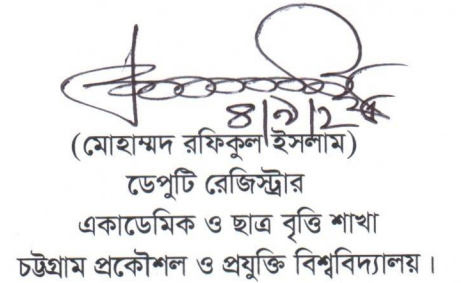 (মোহাম্মদ রফিকুল ইসলাম)
ডেপুটি রেজিস্ট্রার
একাডেমিক ও ছাত্র বৃত্তি শাখা
চট্টগ্রাম প্রকৌশল ও প্রযুক্তি বিশ্ববিদ্যালয়।